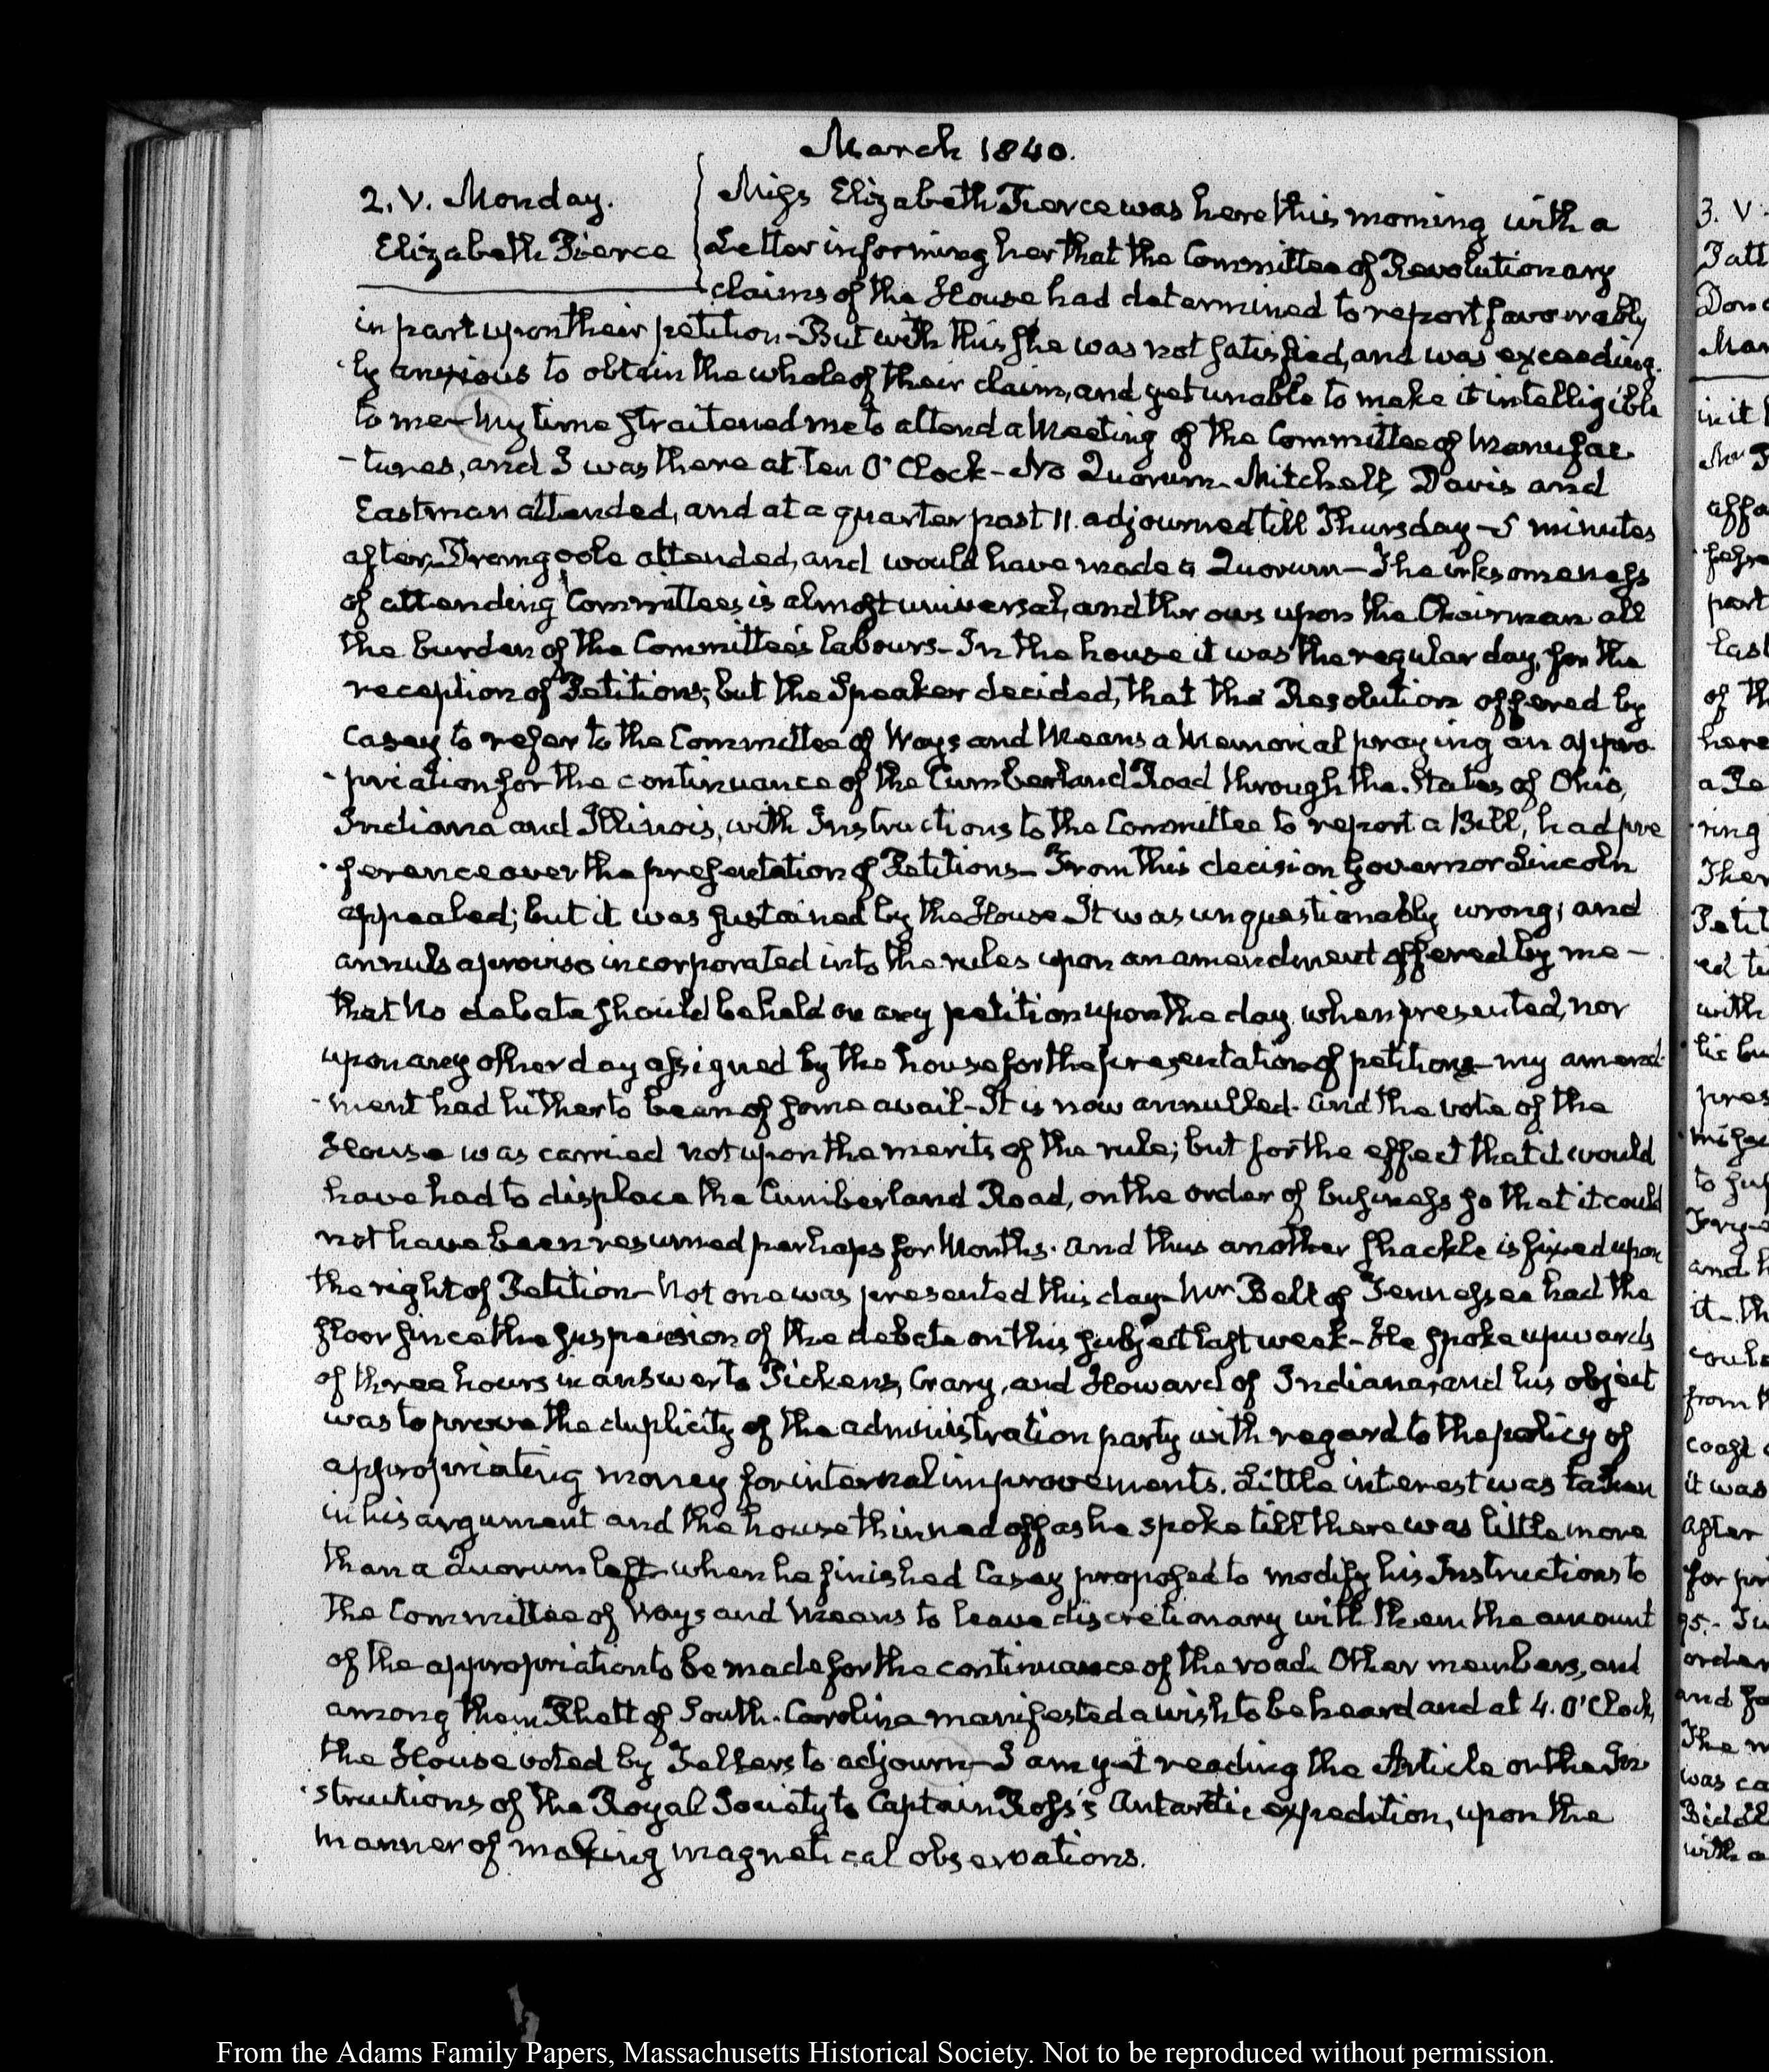 March 1840.
2. V. Monday.
Elizabeth Pierce
Miss Elizabeth Pierce was here this morning with a
Letter informing her that the Committee of Revolutionary
claims of the House had determined to report favourably
in part upon their petition – But with this she was not satisfied, and was exceeding-
ly anxious to obtain the whole of their claim, and yet unable to make it intelligible
to me – My time straitened me to attend a Meeting of the Committee of Manufac-
-tures, and I was there at ten O'Clock – No Quorum – Mitchell, Davis and
Eastman attended, and at a quarter past 11. adjourned till Thursday – 5 minutes
after, Dromgoole attended, and would have made a Quorum – The irksomeness
of attending Committees is almost universal, and throws upon the Chairman all
the burden of the Committee's labours – In the house it was the regular day, for the
reception of Petitions; but the Speaker decided, that the Resolution offered by
Casey to refer to the Committee of Ways and Means a Memorial praying an appro-
-priation for the continuance of the Cumberland Road through the States of Ohio,
Indiana and Illinois, with Instructions to the Committee to report a Bill, had pre
-ference over the presentation of Petitions – From this decision Governor Lincoln
appealed; but it was sustained by the House It was unquestionably wrong; and
annuls a proviso incorporated into the rules upon an amendment offered by me –
that No debate should be held on any petition upon the day when presented, nor
upon any other day assigned by the house for the presentation of petitions – my amend-
-ment had hitherto been of some avail – It is now annulled. and the vote of the
House was carried not upon the merits of the rule; but for the effect that it would
have had to displace the Cumberland Road, on the order of business so that it could
not have been resumed perhaps for Months. And thus another shackle is fixed upon
the right of Petition – Not one was presented this day – Mr Bell of Tennessee had the
floor since the suspension of the debate on this subject last week – He spoke upwards
of three hours in answer to Pickens, Crary, and Howard of Indiana, and his object
was to prove the duplicity of the administration party with regard to the policy of
appropriating money for internal improvements. Little interest was taken
in his argument and the house thinned off as he spoke till there was little more
than a Quorum left – when he finished Casey proposed to modify his Instructions to
the Committee of Ways and Means to leave discretionary with them the amount
of the appropriation to be made for the continuance of the road. Other members, and
among them Rhett of South-Carolina manifested a wish to be heard and at 4. O'Clock,
the House voted by Tellers to adjourn – I am yet reading the Article on the In
-structions of the Royal Society to Captain Ross's Antartic expedition, upon the
manner of making magnetical observations.
From the Adams Family Papers, Massachusetts Historical Society. Not to be reproduced without permission.